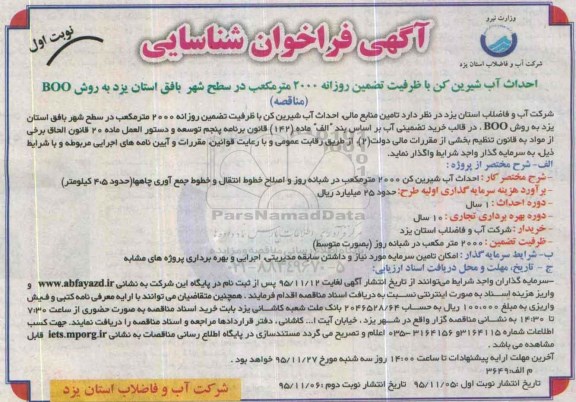 وزارت نیرو
شرکت آب و فاضلاب استان یزد
آگهی فراخوان شناسایی
نوبت اول
احداث آب شیرین کن با ظرفیت تضمین روزانه ۲۰۰۰ مترمکعب در سطح شهر بافق استان یزد به روش BOO
(مناقصه)
شرکت آب و فاضلاب استان یزد در نظر دارد تامین منابع مالی، احداث آب شیرین کن با ظرفیت تضمین روزانه ۲۰۰۰ مترمکعب در سطح شهر بافق استان
یزد به روش BOO ، در قالب خرید تضمینی آب بر اساس بند "الف" ماده (۱۴۲) قانون برنامه پنجم توسعه و دستور العمل ماده ۲۰ قانون الحاق برخی
از مواد به قانون تنظیم بخشی از مقررات مالی دولت(۲)، از طریق رقابت عمومی و با رعایت قوانین، مقررات و آیین نامه های اجرایی مربوطه و با شرایط
ذیل، به سرمایه گذار واجد شرایط واگذار نماید.
الف- شرح مختصر از پروژه :
- شرح مختصر کار : احداث آب شیرین کن ۲۰۰۰ مترمکعب در شبانه روز و اصلاح خطوط انتقال و خطوط جمع آوری چاهها(حدود ۴.۵ کیلومتر)
- برآورد هزینه سرمایه گذاری اولیه طرح: حدود ۲۵ میلیارد ریال
- دوره احداث : ۱ سال
- دوره بهره برداری تجاری : ۱۰ سال
- خریدار : شرکت آب و فاضلاب استان یزد
- ظرفیت تضمین : ۲۰۰۰ متر مکعب در شبانه روز (بصورت متوسط)
ب- شرایط سرمایه گذار : امکان تامین سرمایه مورد نیاز و داشتن سابقه مدیریتی، اجرایی و بهره برداری پروژه های مشابه
ج - تاریخ، مهلت و محل دریافت اسناد ارزیابی:
-سرمایه گذاران واجد شرایط می‌توانند از تاریخ انتشار آگهی لغایت ۹۵/۱۱/۱۲ پس از ثبت نام در پایگاه این شرکت به نشانی www.abfayazd.ir و
واریز هزینه اسناد به صورت اینترنتی نسبت به دریافت اسناد مناقصه اقدام فرمایند . همچنین متقاضیان می توانند با ارایه معرفی نامه کتبی و فیش
واریزی به مبلغ ۱۰۰،۰۰۰ ریال به حساب ۲۰۴۶۵۲۸/۶۴ بانک ملت شعبه کاشانی یزد بابت خرید اسناد مناقصه به صورت حضوری از ساعت ۷:۳۰
تا ۱۴:۳۰ به نشانی مناقصه گزار واقع در شهر یزد، خیابان آیت ا... کاشانی ، دفتر قراردادها مراجعه و اسناد مناقصه را دریافت نمایند. جهت کسب
اطلاعات شماره ۳۱۶۴۱۱۵و ۳۱۶۴۱۵۶-۰۳۵ اعلام و تصریح می گردد مستندسازی در پایگاه اطلاع رسانی مناقصات به نشانی iets.mporg.ir قابل
مشاهده می باشد .
آخرین مهلت ارایه پیشنهادات تا ساعت ۱۴:۰۰ روز سه شنبه مورخ ۹۵/۱۱/۲۷ خواهد بود .
م الف:۳۶۴۹
تاریخ انتشار نوبت اول :۹۵/۱۱/۰۵ تاریخ انتشار نوبت دوم :۹۵/۱۱/۰۶
شرکت آب و فاضلاب استان یزد
ParsNamadData
۰۲۱-۸۸۳۴۹۶۷۰-۵